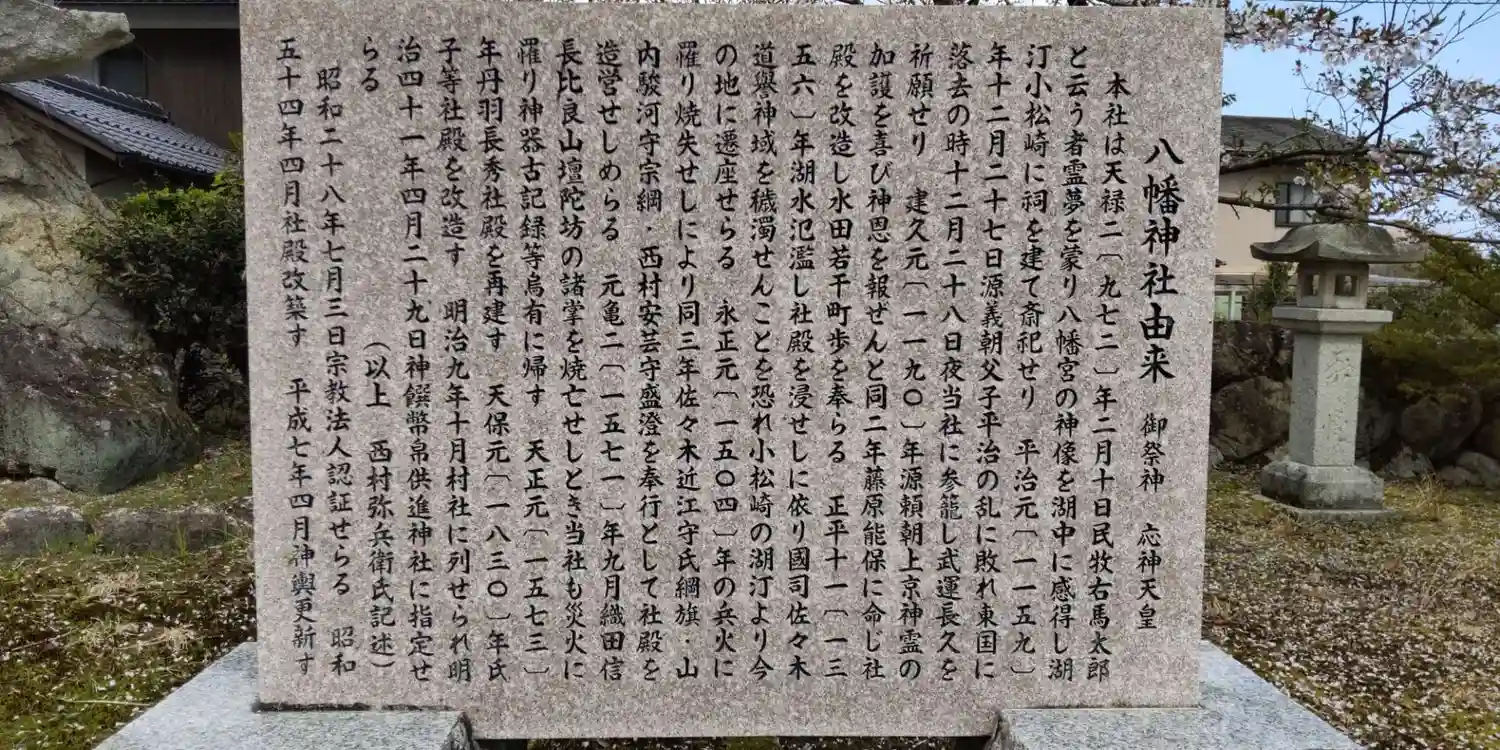 八幡神社由来　御祭神　応神天皇
本社は天禄二〔九七二〕年二月十日民牧右馬太郎
と云う者霊夢を蒙り八幡宮の神像を湖中に感得し湖
汀小松崎に祠を建て斎祀せり　平治元〔一一五九〕
年十二月二十七日源義朝父子平治の乱に敗れ東国に
落去の時十二月二十八日夜当社に参籠し武運長久を
祈願せり　建久元〔一一九〇〕年源頼朝上京神霊の
加護を喜び神恩を報ぜんと同二年藤原能保に命じ社
殿を改造し水田若干町歩を奉らる　正平十一〔一三
五六〕年湖水氾濫し社殿を浸せしに依り國司佐々木
道譽神域を穢濁せんことを恐れ小松崎の湖汀より今
の地に遷座せらる　永正元〔一五〇四〕年の兵火に
羅り焼失せしにより同三年佐々木近江守氏綱旗・山
内駿河守宗綱・西村安芸守盛澄を奉行として社殿を
造営せしめらる　元亀二〔一五七一〕年九月織田信
長比良山壇陀坊の諸掌を焼亡せしとき当社も災火に
罹り神器古記録等烏有に帰す　天正元〔一五七三〕
年丹羽長秀社殿を再建す　天保元〔一八三〇〕年氏
子等社殿を改造す　明治九年十月村社に列せられ明
治四十一年四月二十九日神饌幣帛供進神社に指定せ
らる　（以上　西村弥兵衛氏記述）
昭和二十八年七月三日宗教法人認証せらる　昭和
五十四年四月社殿改築す　平成七年四月神輿更新す